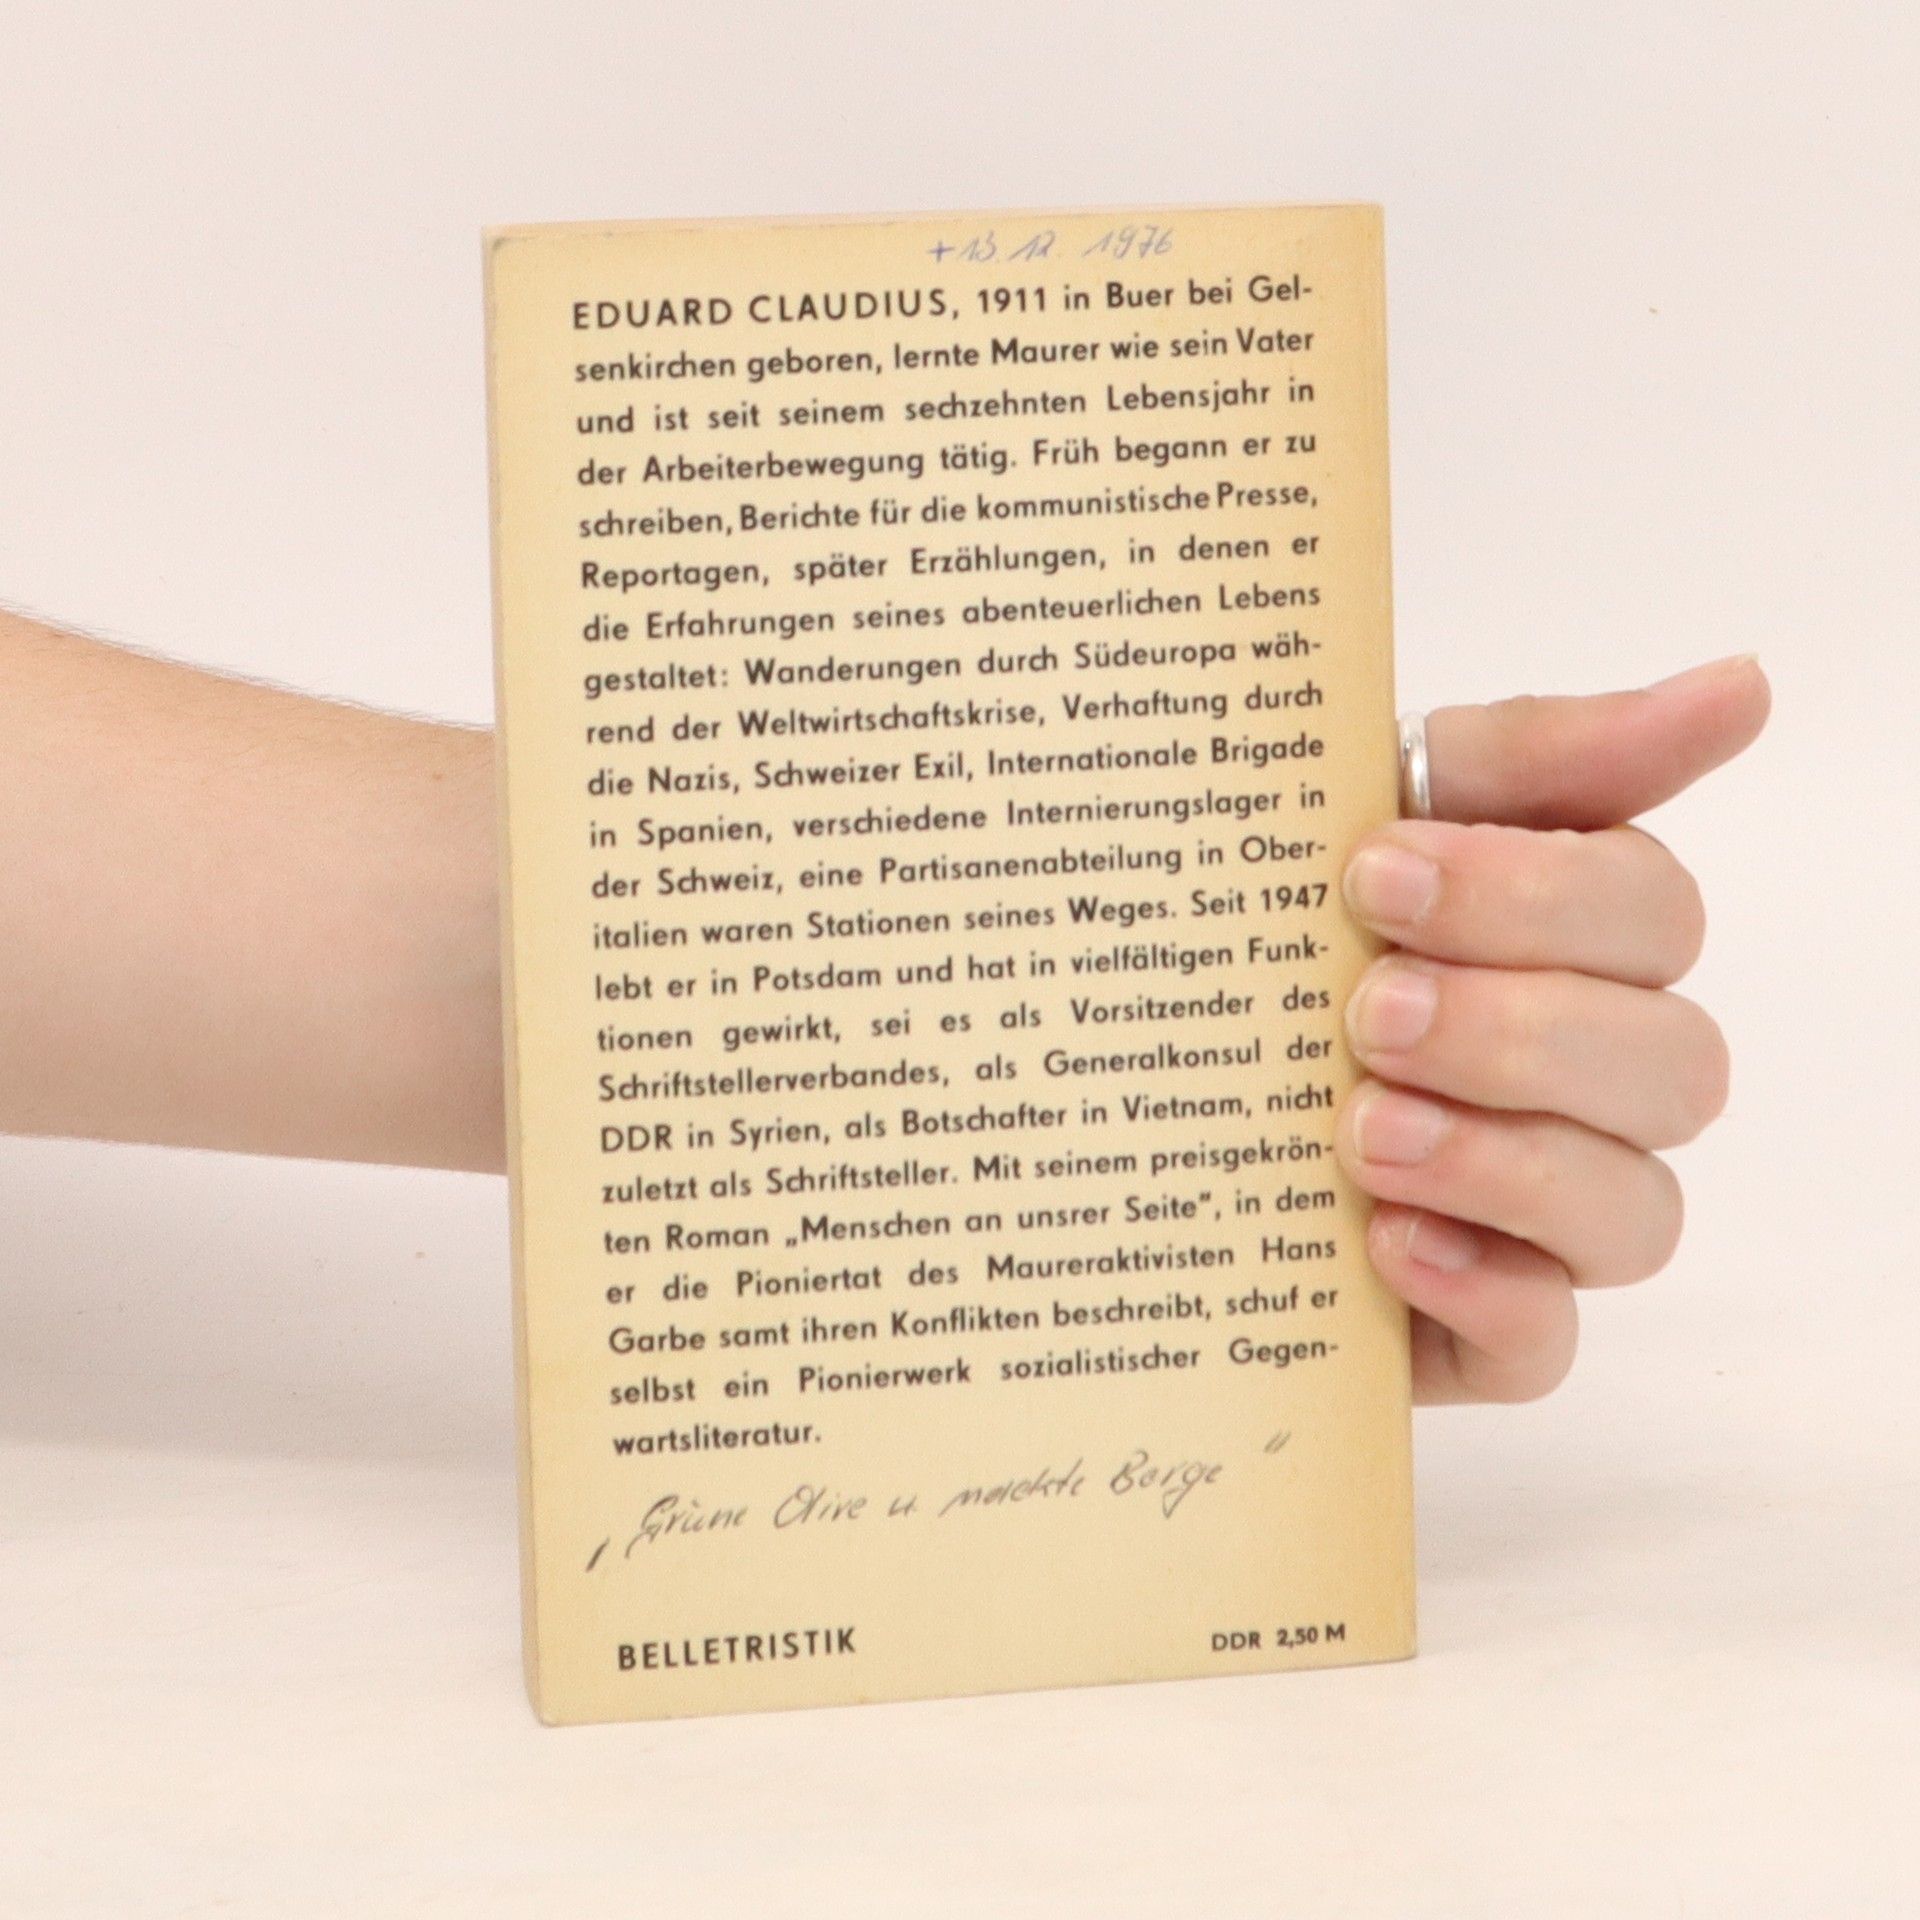 + 13. 12. 1976
EDUARD CLAUDIUS, 1911 in Buer bei Gel-
senkirchen geboren, lernte Maurer wie sein Vater
und ist seit seinem sechzehnten Lebensjahr in
der Arbeiterbewegung tätig. Früh begann er zu
schreiben, Berichte für die kommunistische Presse,
Reportagen, später Erzählungen, in denen er
die Erfahrungen seines abenteuerlichen Lebens
gestaltet: Wanderungen durch Südeuropa wäh-
rend der Weltwirtschaftskrise, Verhaftung durch
die Nazis, Schweizer Exil, Internationale Brigade
in Spanien, verschiedene Internierungslager in
der Schweiz, eine Partisanenabteilung in Ober-
italien waren Stationen seines Weges. Seit 1947
lebt er in Potsdam und hat in vielfältigen Funk-
tionen gewirkt, sei es als Vorsitzender des
Schriftstellerverbandes, als Generalkonsul der
DDR in Syrien, als Botschafter in Vietnam, nicht
zuletzt als Schriftsteller. Mit seinem preisgekrön-
ten Roman „Menschen an unsrer Seite”, in dem
er die Pioniertat des Maureraktivisten Hans
Garbe samt ihren Konflikten beschreibt, schuf er
selbst ein Pionierwerk sozialistischer Gegen-
wartsliteratur.
„Grüne Olive u. nackte Berge"
BELLETRISTIK
DDR 2,50 M